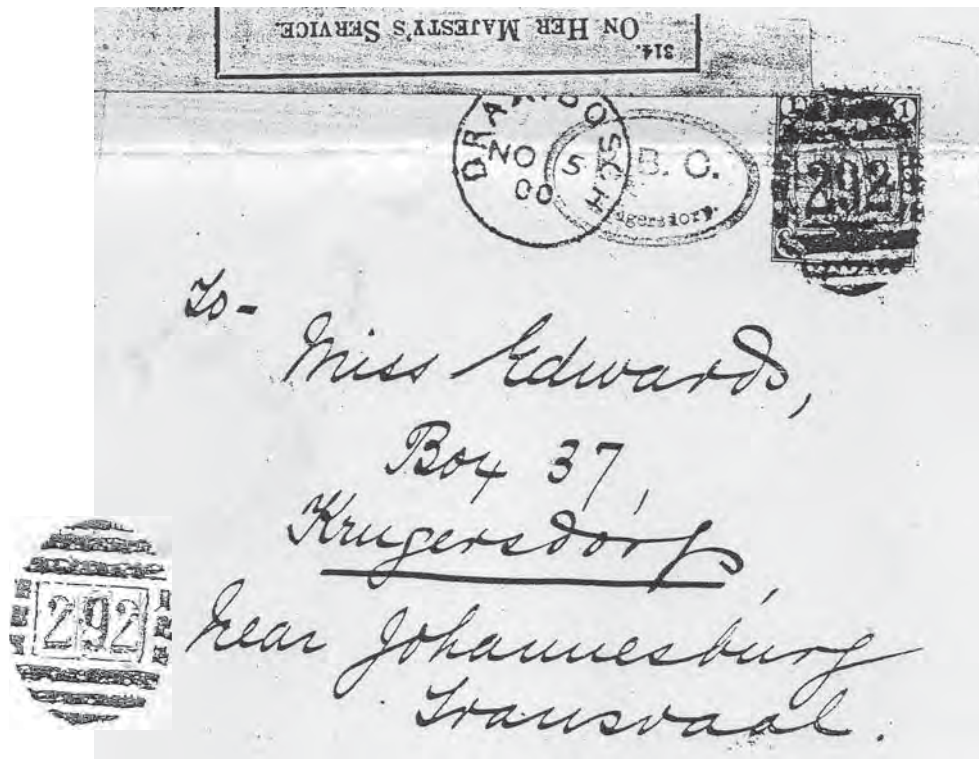 314.
ON HER MAJESTY'S SERVICE.
NO 5
00
B. O.
1 1
292
To-
Miss Edwards,
Box 37,
Krugersdorp,
Near Johannesburg
Transvaal.
292